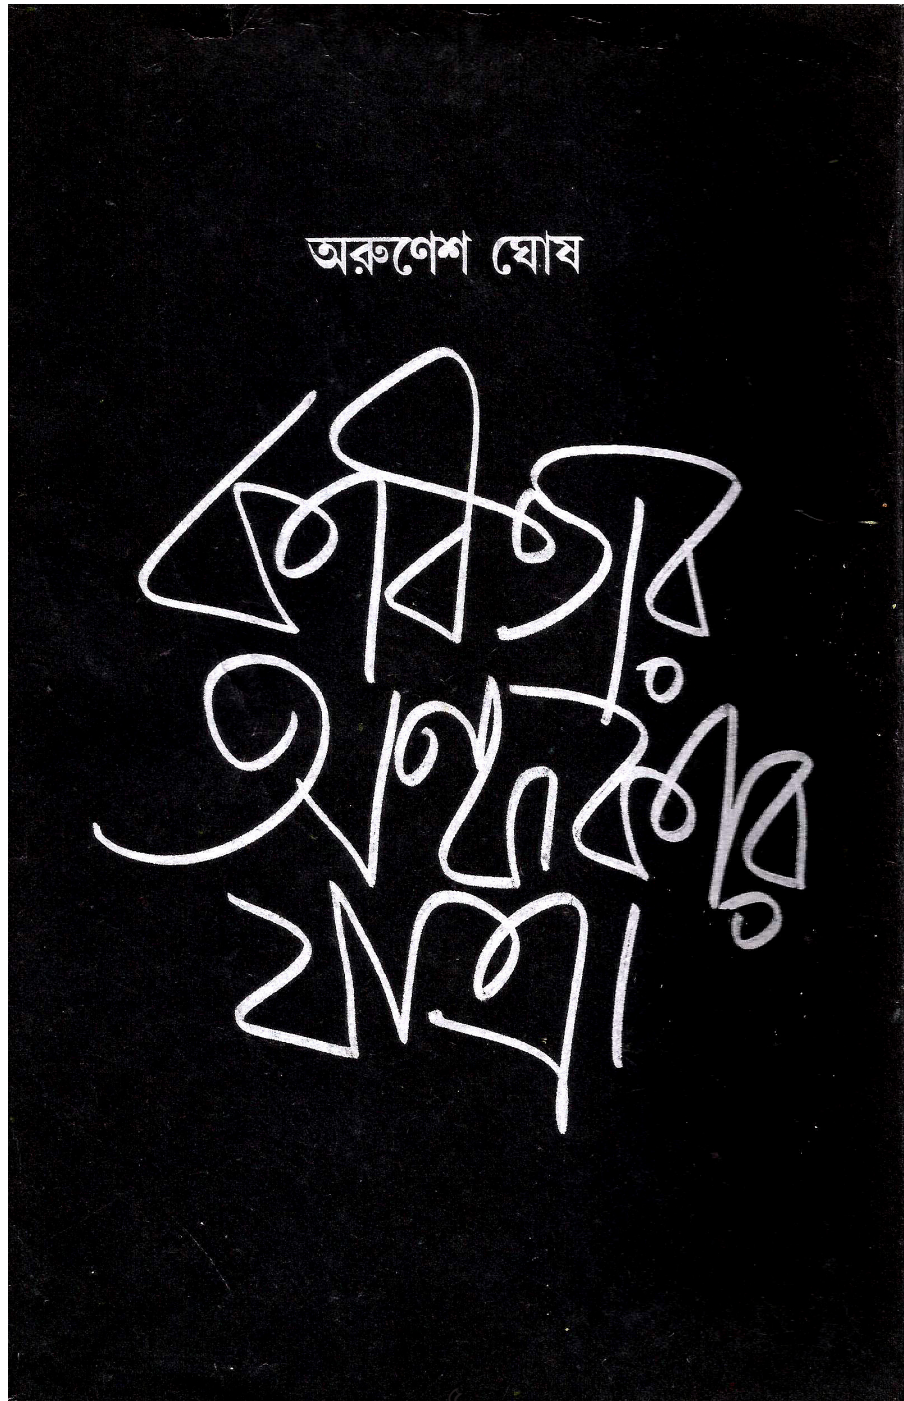 অরুণেশ ঘোষ
কবিতার
অন্ধকার
যাত্রা